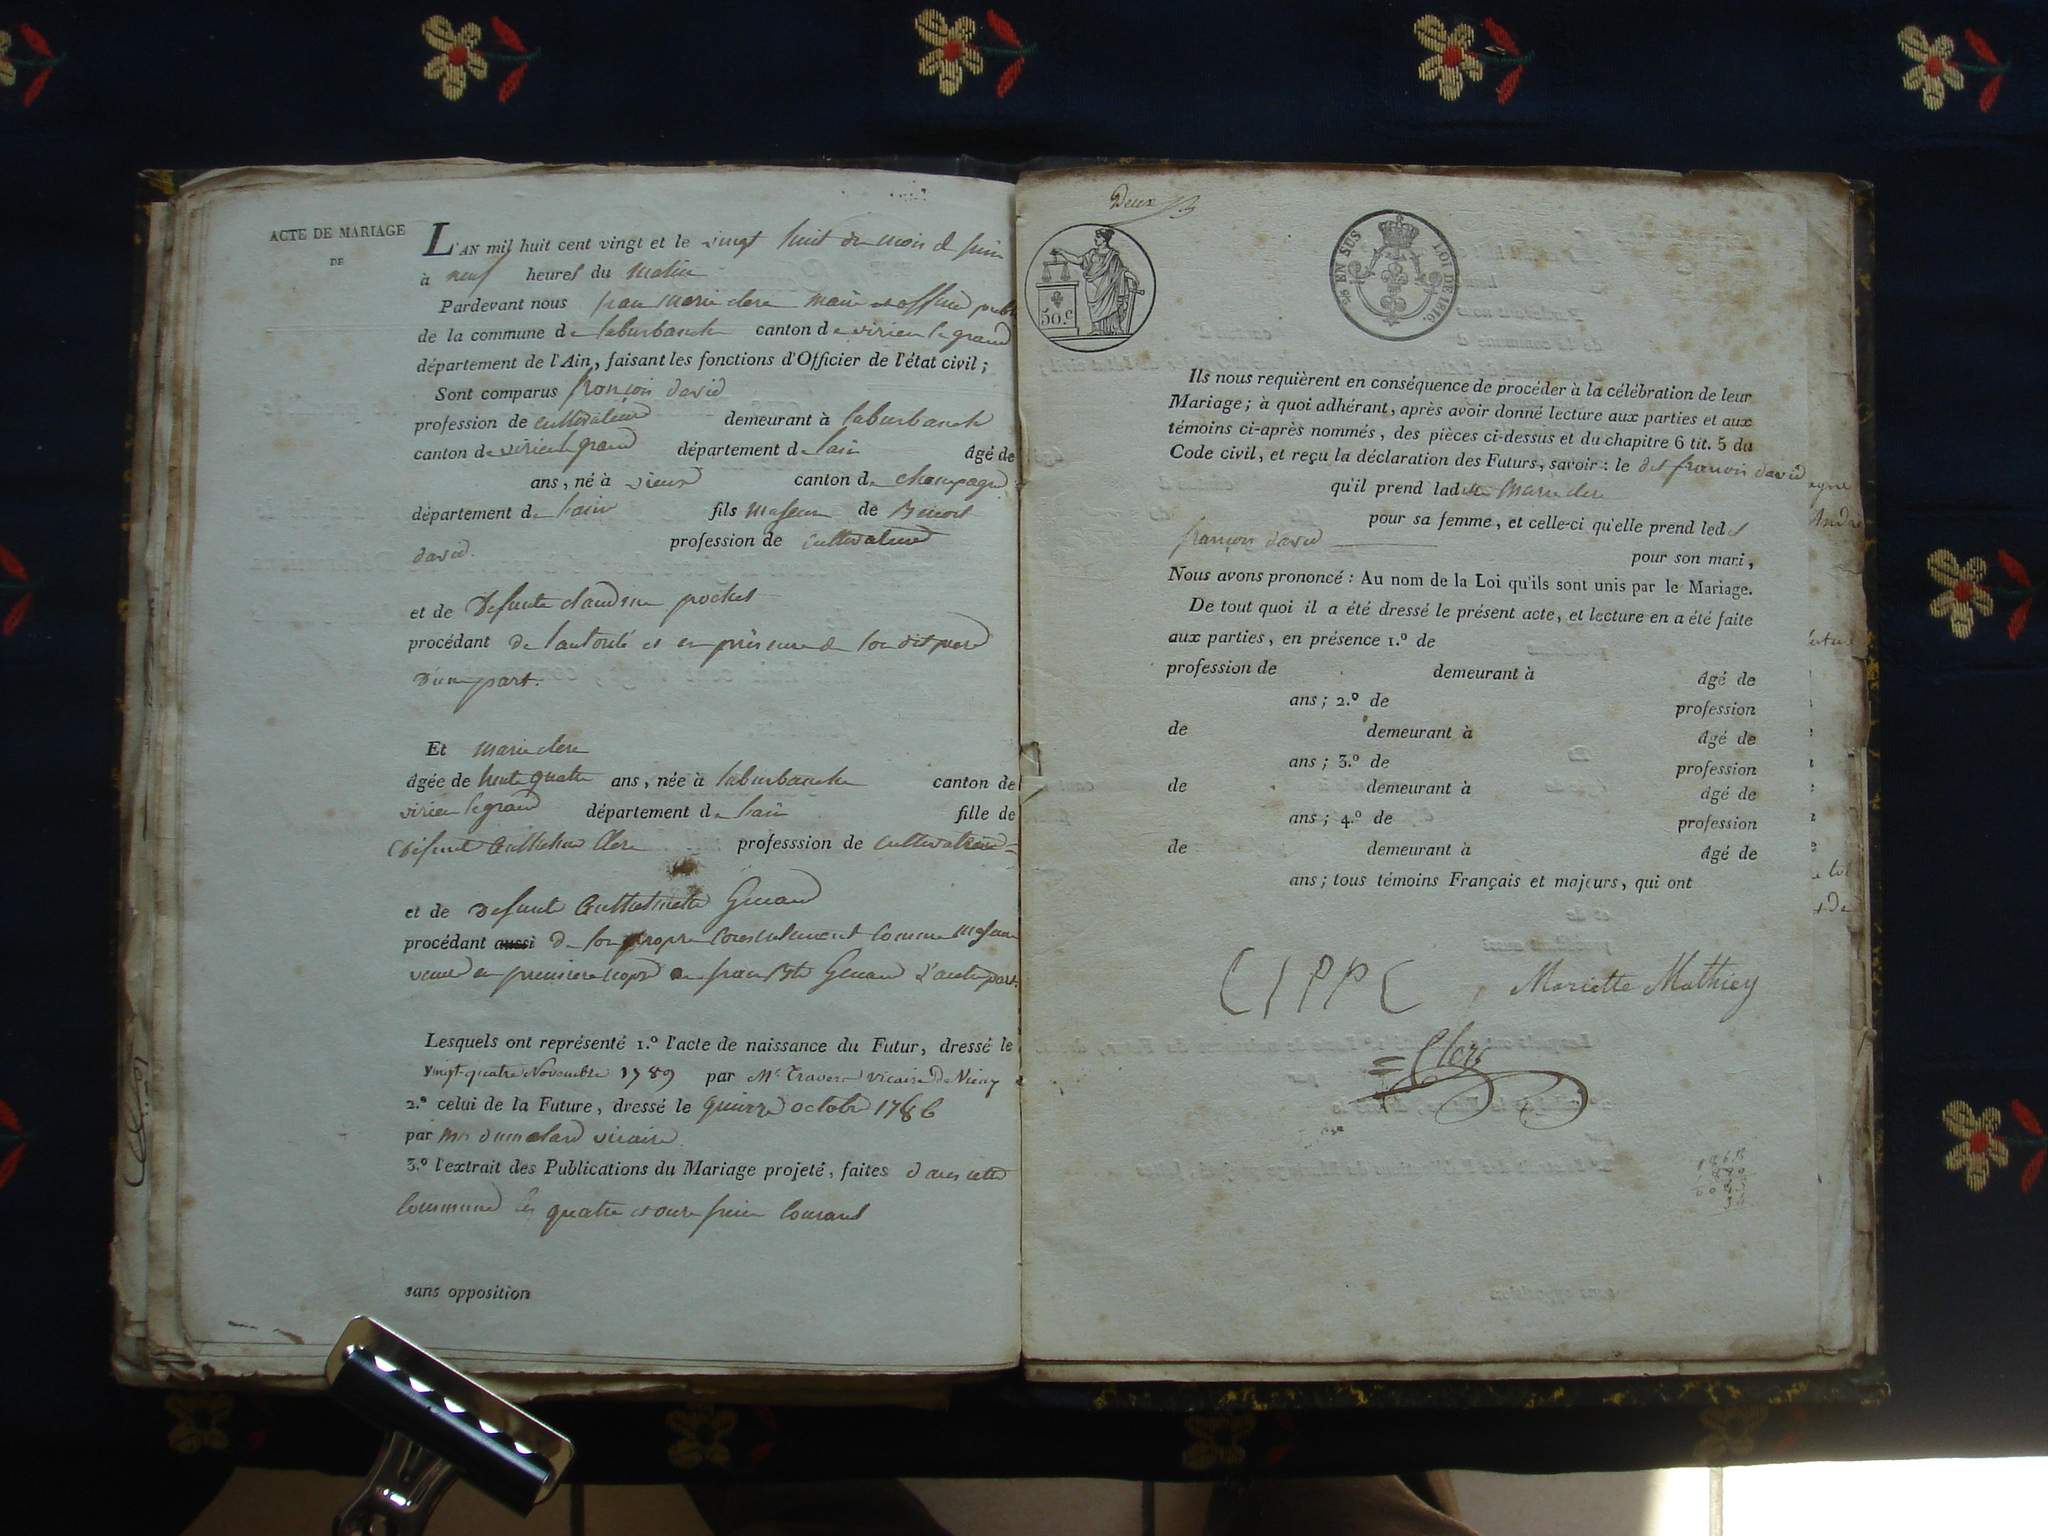 ACTE DE MARIAGE
DE
L'AN mil huit cent vingt et le vingt huit du mois de juin
à neuf heures du matin
Pardevant nous jean marie clerc maire et officier public
de la commune de laburbanche canton de virieu le grand
département de l'Ain, faisant les fonctions d'Officier de l'état civil;
Sont comparus françois david
profession de cultivateur demeurant à laburbanche
canton de virieu le grand département de lain âgé de
ans, né à vieux canton de champagne
département de lain fils majeur de Benoit
david profession de cultivateur
et de Defunte claudine pochet
procédant de lautorité et en présence de son dit pere
D'une part.
Et marie clerc
âgée de trente quatre ans, née à laburbanche canton de
virieu le grand département de lain fille de
Defunt Anthelme Clerc professsion de cultivateur
et de Defunte Anthelmette Guinard
procédant aussi de son propre consentement comme majeure
veuve en premiere noce de jean Bte Guinard d'autre part.
Lesquels ont représenté 1.º l'acte de naissance du Futur, dressé le
vingt-quatre Novembre 1789 par Mr Traverse vicaire De Vieux
2.º celui de la Future, dressé le quinze octobre 1786
par mr dumolard vicaire
3.º l'extrait des Publications du Mariage projeté, faites dans cette
commune les quatre et onze juin courant
sans opposition
Deux
50.c
% EN SUS LOI DE 1816.
Ils nous requièrent en conséquence de procéder à la célébration de leur
Mariage; à quoi adhérant, après avoir donné lecture aux parties et aux
témoins ci-après nommés, des pièces ci-dessus et du chapitre 6 tit. 5 du
Code civil, et reçu la déclaration des Futurs, savoir: le dit françois david
qu'il prend ladite marie clerc
pour sa femme, et celle-ci qu'elle prend ledit
françois david
pour son mari,
Nous avons prononcé: Au nom de la Loi qu'ils sont unis par le Mariage.
De tout quoi il a été dressé le présent acte, et lecture en a été faite
aux parties, en présence 1.º de
profession de demeurant à âgé de
ans; 2.º de profession
de demeurant à âgé de
ans; 3.º de profession
de demeurant à âgé de
ans; 4.º de profession
de demeurant à âgé de
ans; tous témoins Français et majeurs, qui ont
CIPPC Mariette Mathiey
Clerc